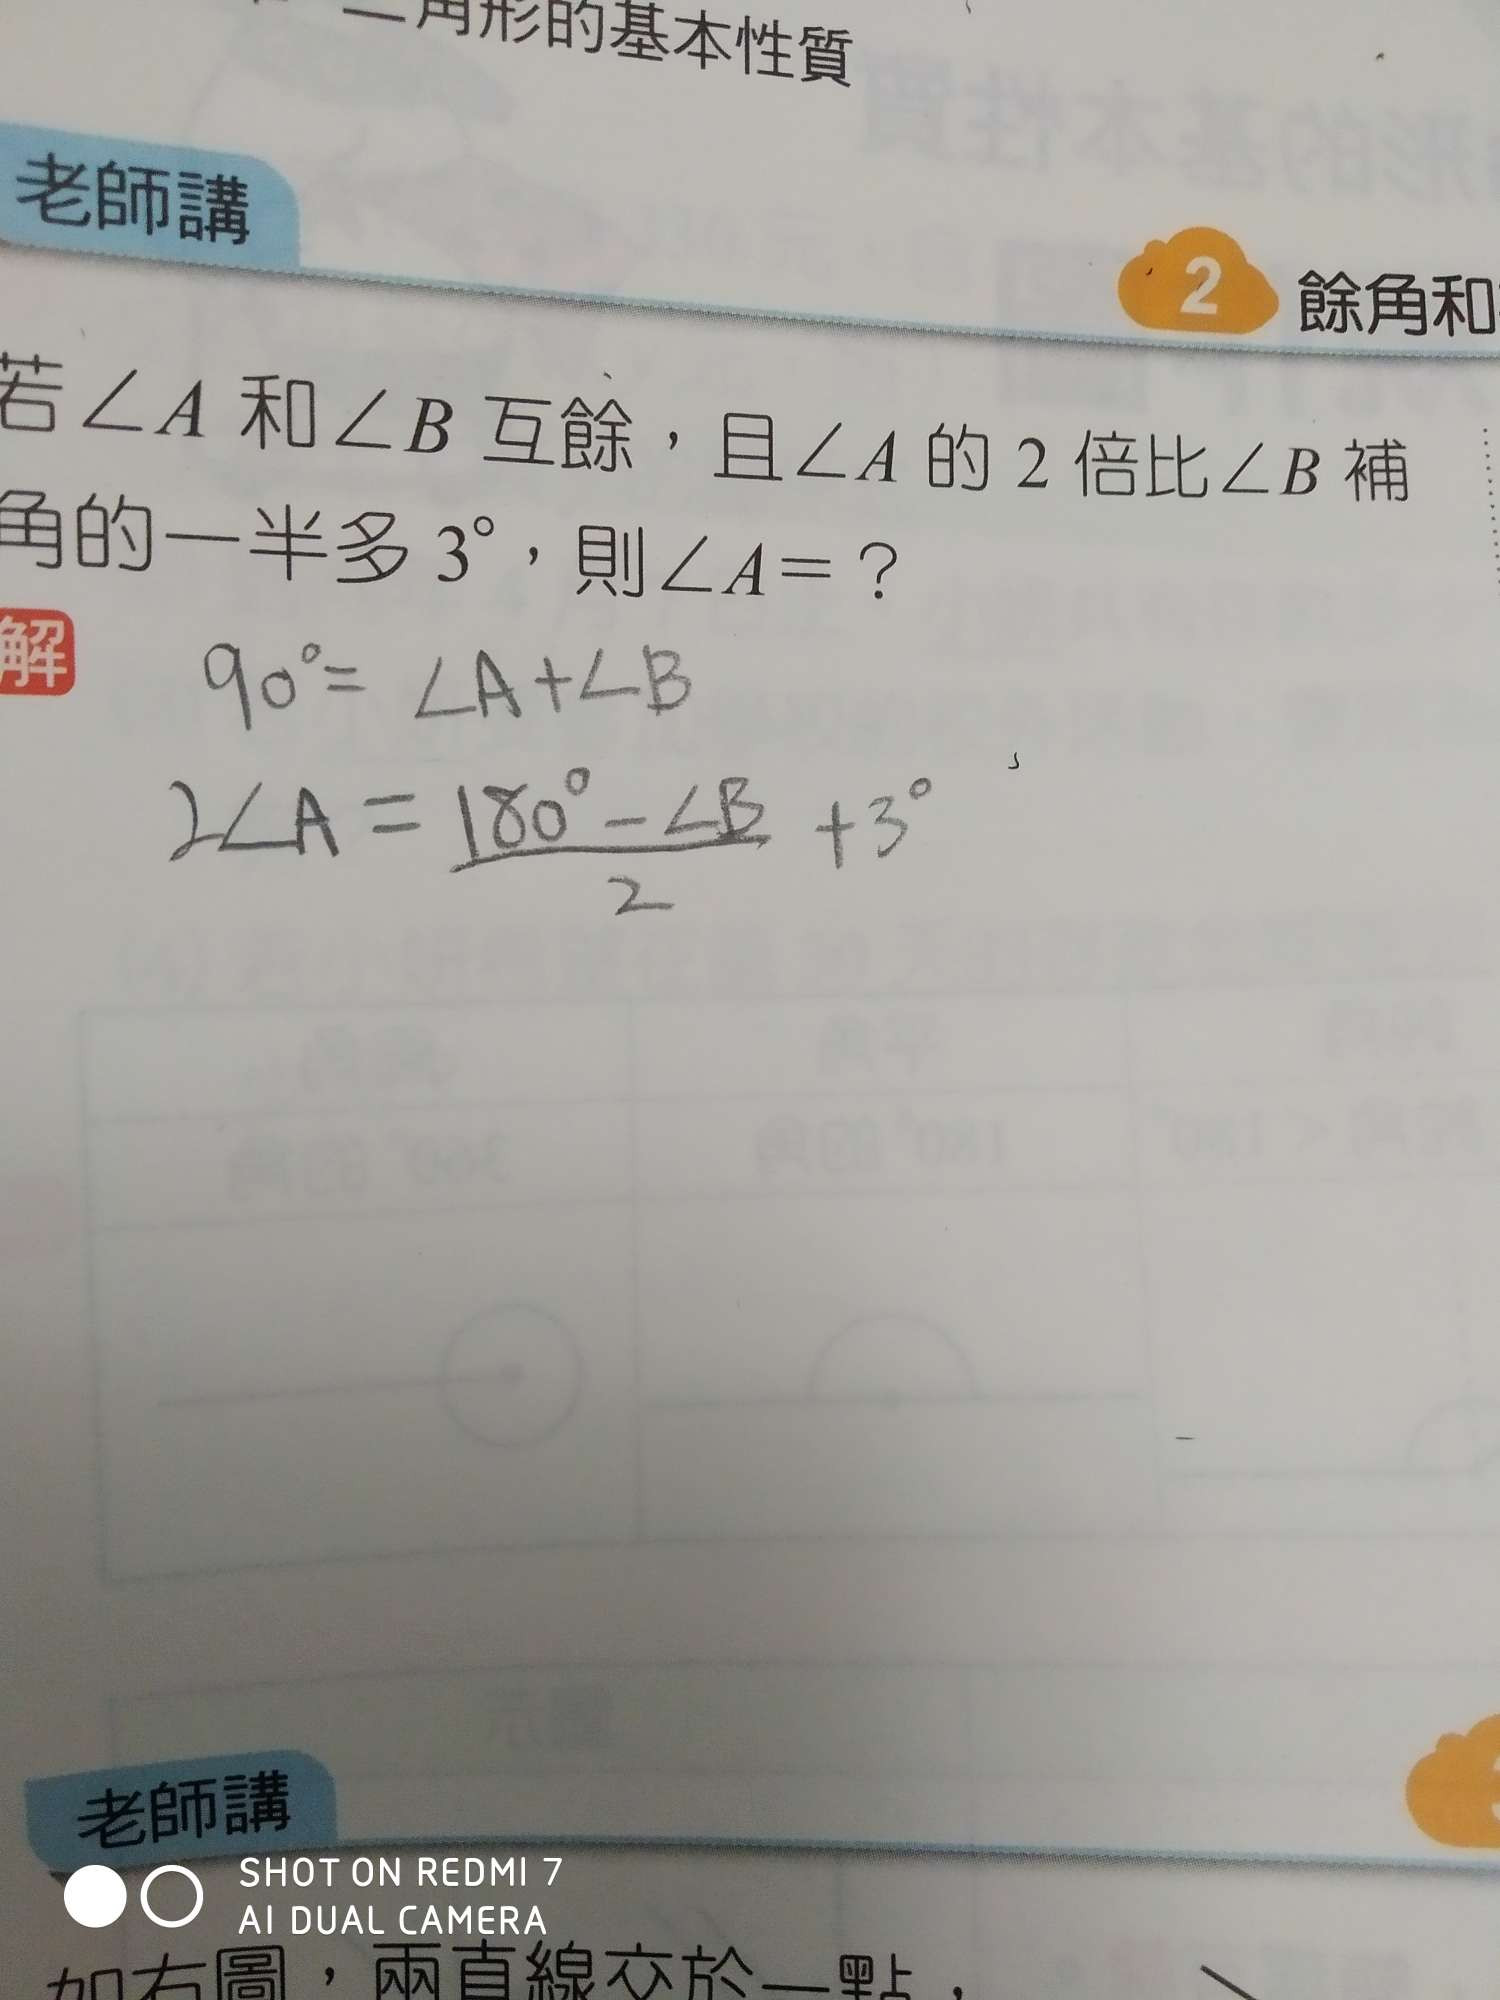 二角形的基本性質
老師講
2 餘角和
若∠A 和∠B 互餘，且∠A 的 2 倍比∠B 補
角的一半多 3°，則∠A=？
解
90°= ∠A+∠B
2∠A = 180°-∠B +3°
2
老師講
SHOT ON REDMI 7
AI DUAL CAMERA
如右圖，兩直線交於一點，